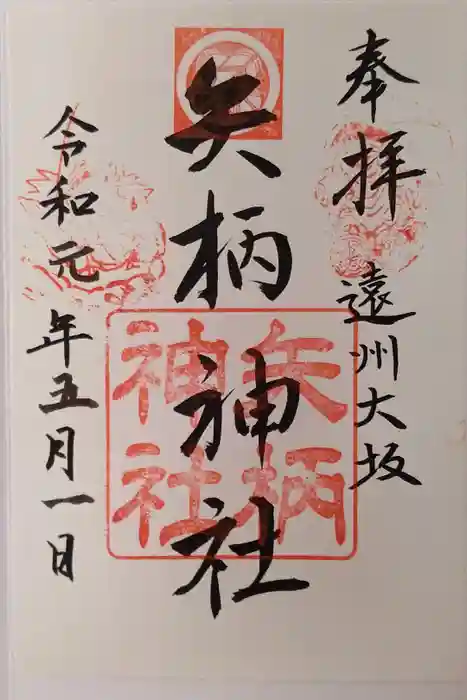 奉拝 遠州大坂
矢柄神社
矢柄
神社
令和元年五月一日